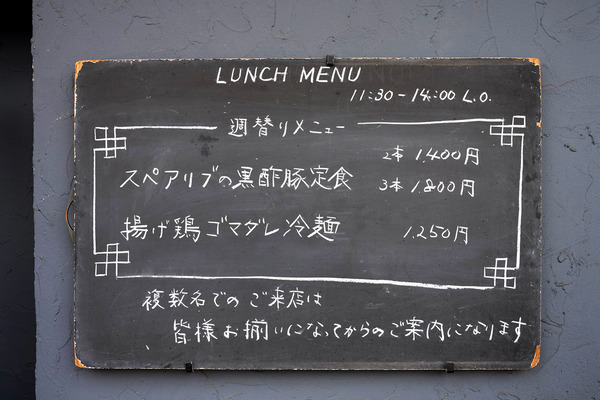 LUNCH MENU
11:30-14:00 L.O.
週替りメニュー
2本 1,400円
スペアリブの黒酢豚定食 3本 1,800円
揚げ鶏ゴマダレ冷麺 1,250円
複数名でのご来店は
皆様お揃いになってからのご案内になります